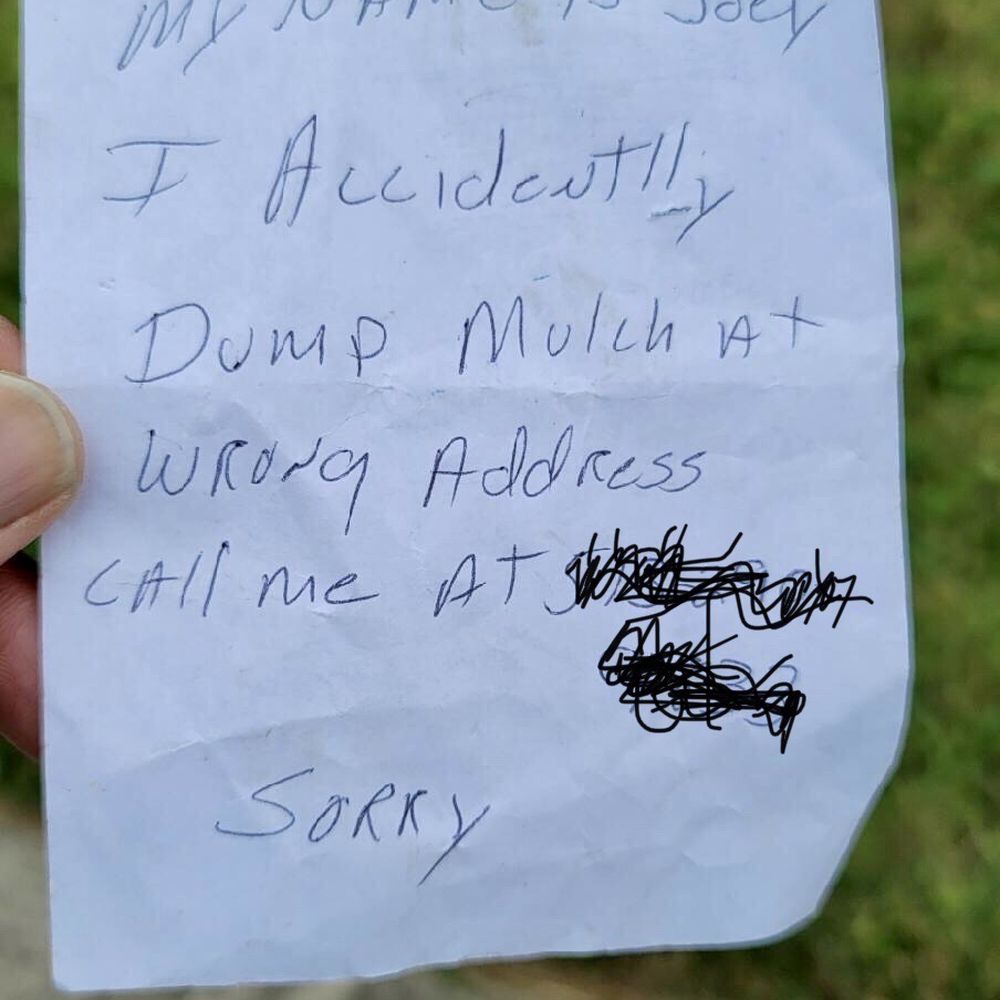 My NAME is Joey
I Accidentlly
Dump Mulch At
WRONG Address
CAll me At
SORRY